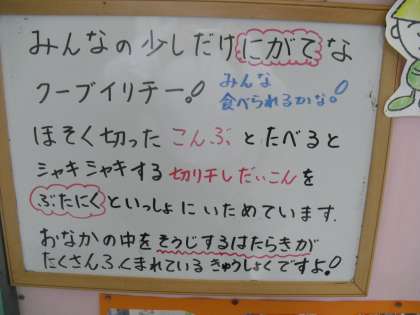 みんなの少しだけにがてな
クーブイリチー!
みんな
食べられるかな!
ほそく切ったこんぶとたべると
シャキシャキする切り干しだいこんを
ぶたにくといっしょにいためています.
おなかの中をそうじするはたらきが
たくさんふくまれているきゅうしょくですよ!